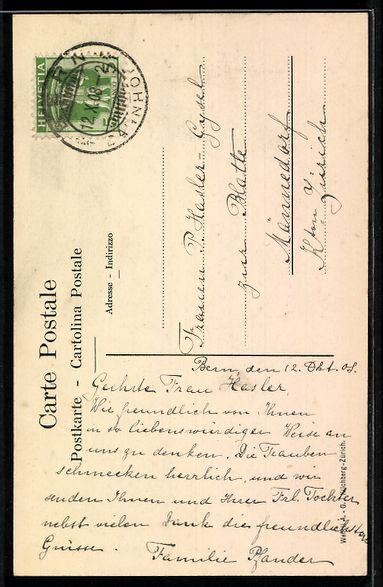 Carte Postale
Postkarte - Cartolina Postale
Adresse - Indirizzo
HELVETIA
5
BERN
12.X.08
BAHNHOF
Frauen P. Hasler-Gysel
zur Blatte
Männedorf
Ktn Zürich
Bern, den 12. Okt. 08.
Geehrte Frau Hasler,
Wie freundlich von Ihnen
in so liebenswürdiger Weise an
uns zu denken. Die Trauben
schmecken herrlich, und wir
senden Ihnen und Ihrer Frl. Tochter
nebst vielen Dank die freundlichsten
Grüsse.
Familie Pfander
A.-G. Eichberg-Zürich